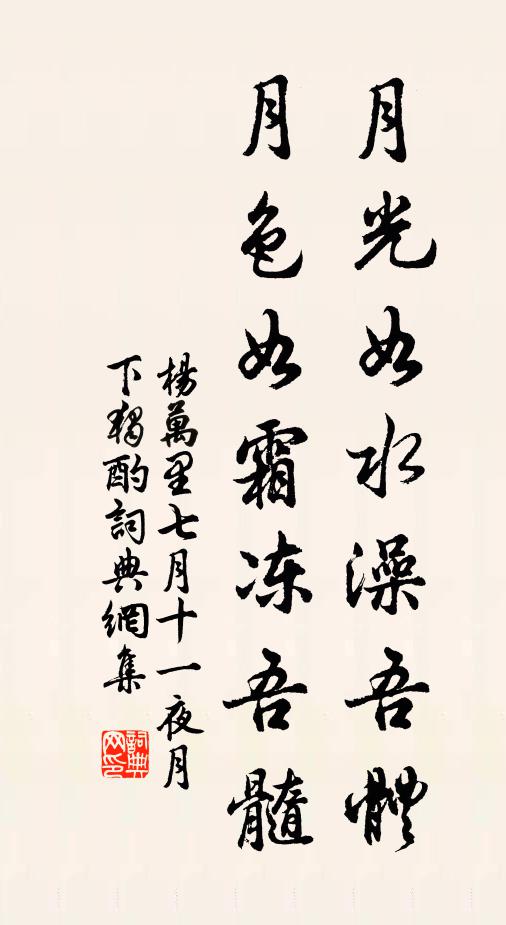 月光如水澡吾體
月色如霜冻吾髓
楊萬里七月十一夜月
下獨酌詞典網集
詞典
网印